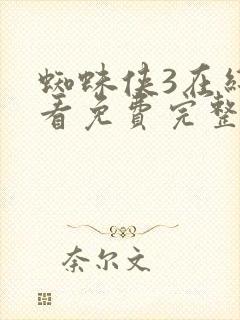 蜘蛛侠3在
看免费完整
奈尔文